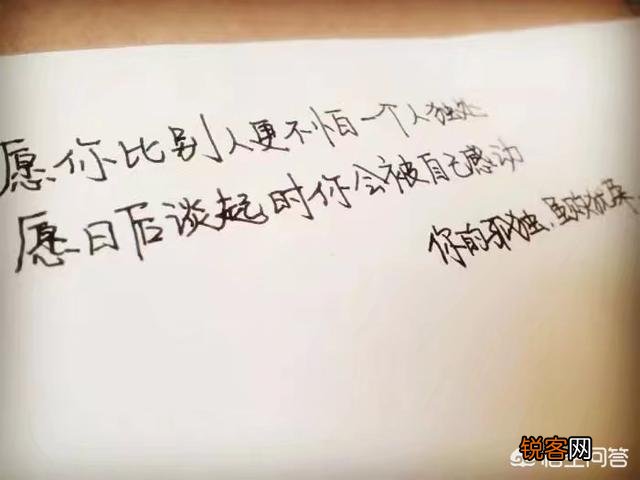 愿你比别人更不怕一个人独处
愿日后谈起时你会被自己感动
你的孤独，虽败犹荣
锐客网
悟空问答